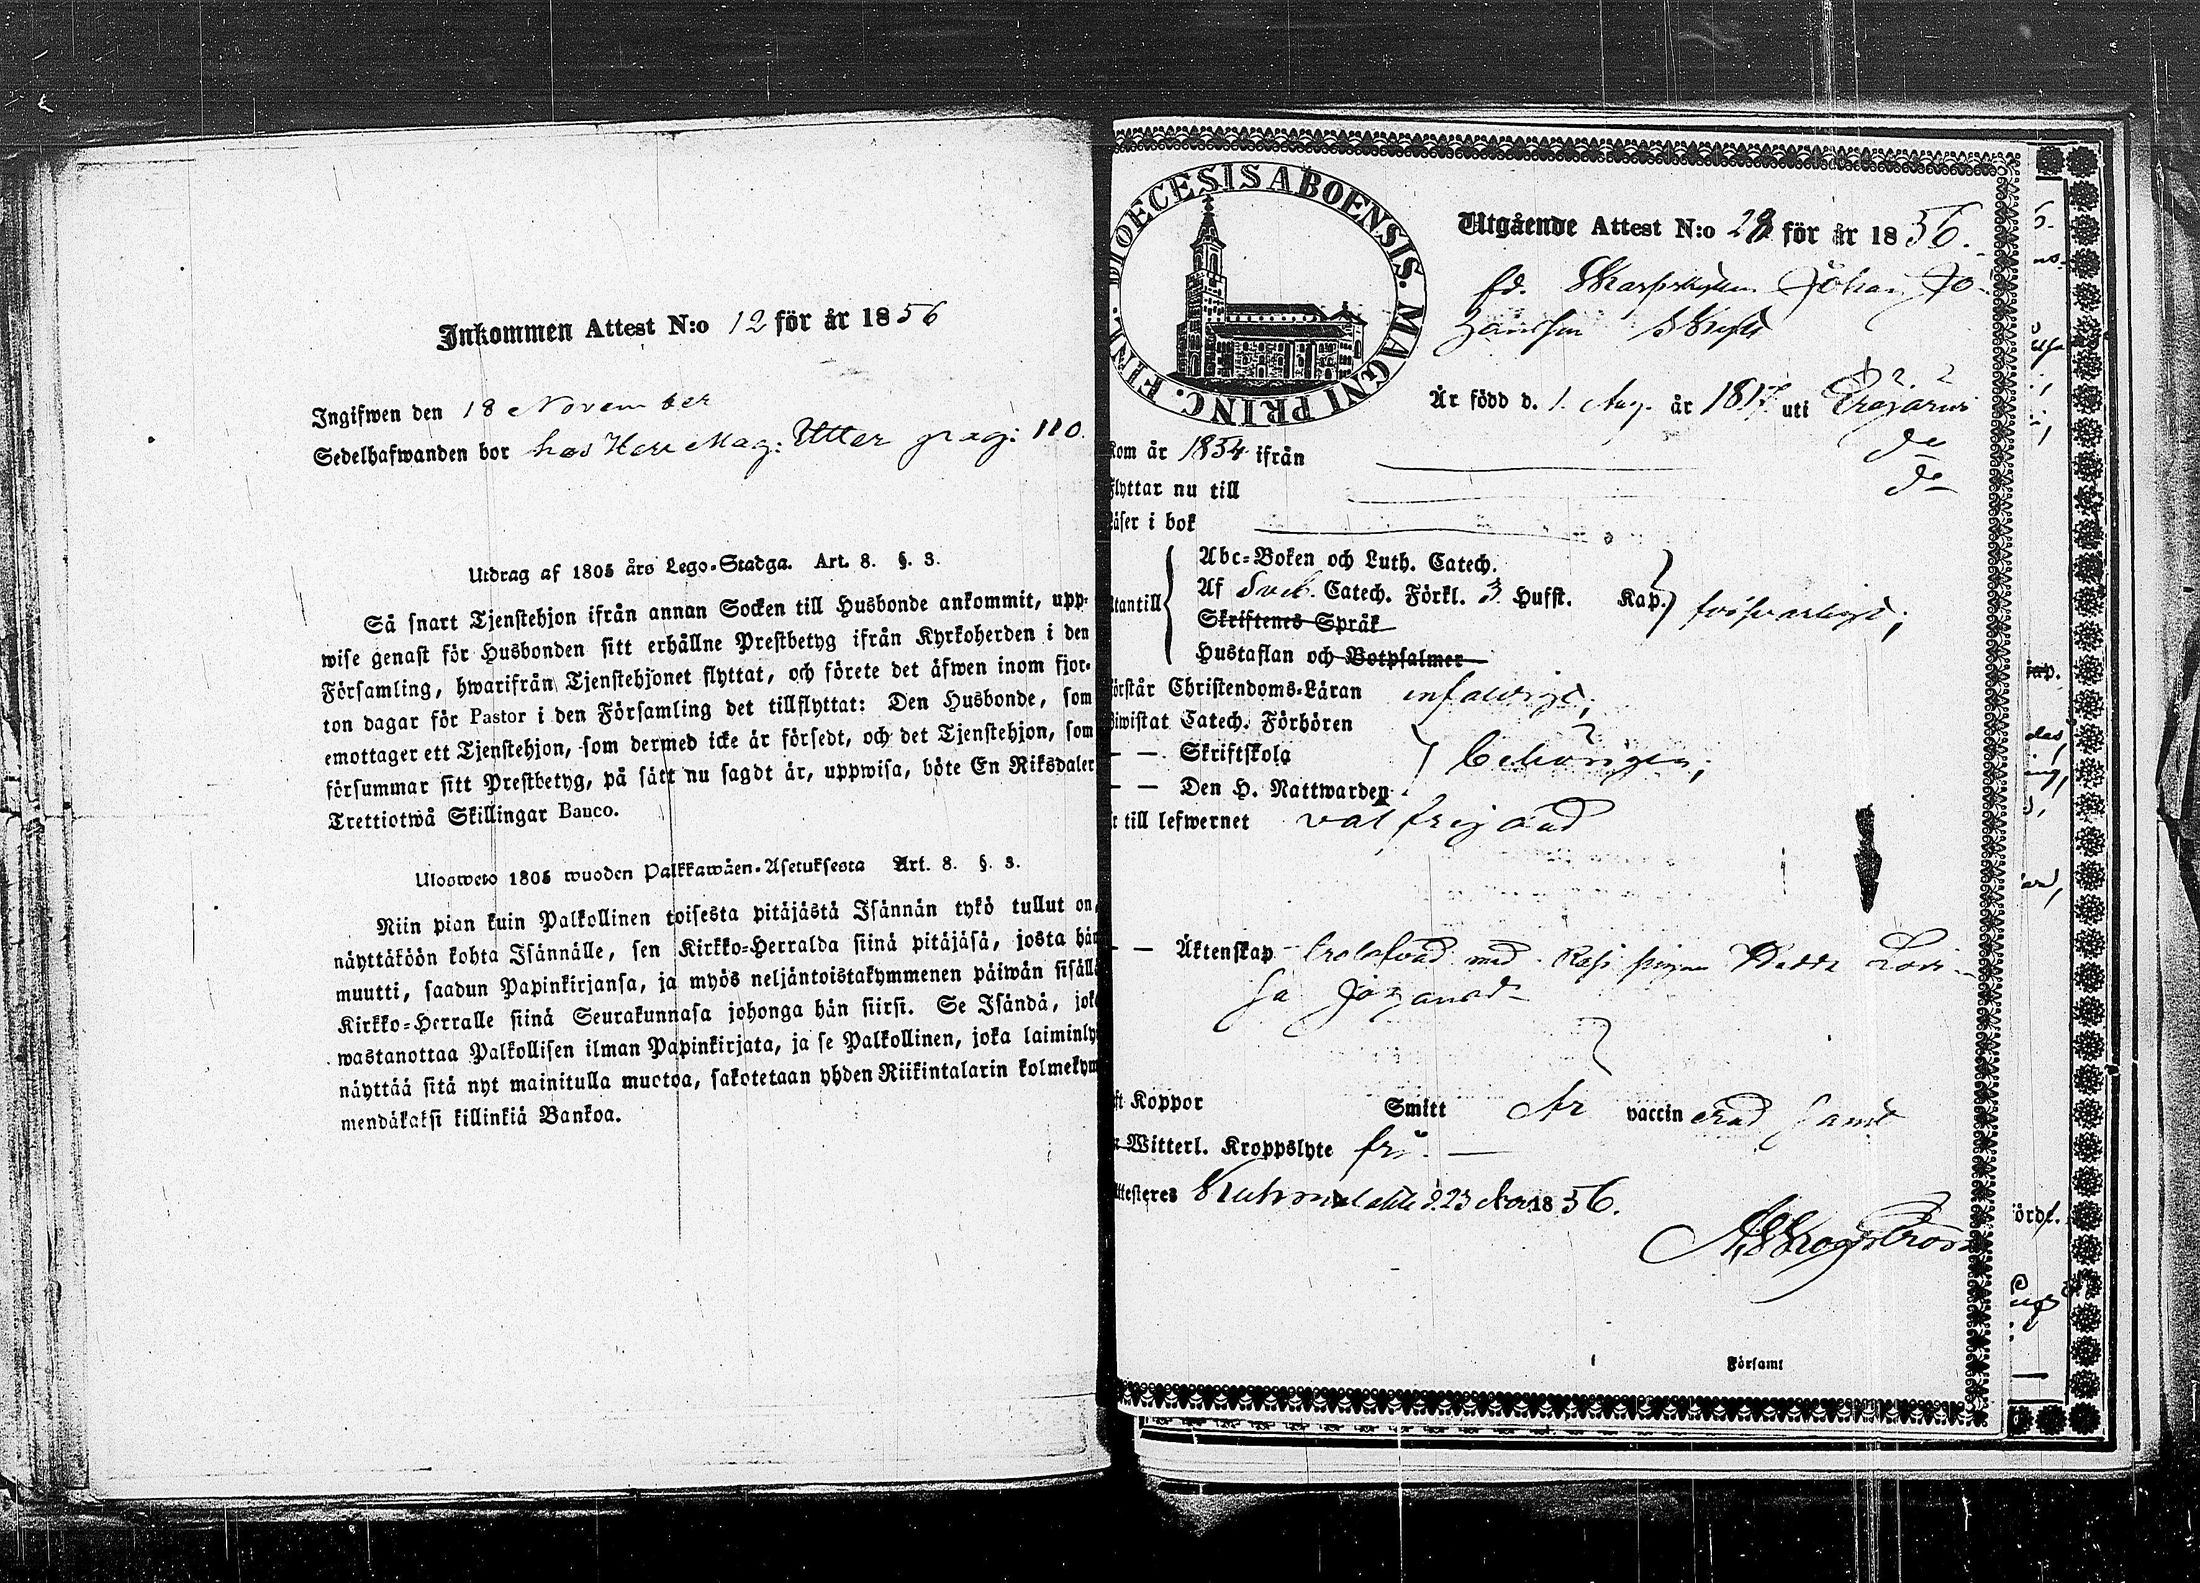 Inkommen Attest N:o 12 för år 1856
Ingifwen den 18 November
Sedelhafwanden bor hos Herr Mag: Utter pag: 110.
Utdrag af 1805 års Lego-Stadga. Art. 8. §. 3.
Så snart Tjenstehjon ifrån annan Socken till Husbonde ankommit, upp-
wise genast för Husbonden sitt erhållne Prestbetyg ifrån Kyrkoherden i den
Församling, hwarifrån Tjenstehjonet flyttat, och förete det äfwen inom fjor-
ton dagar för Pastor i den Församling det tillflyttat: Den Husbonde, som
emottager ett Tjenstehjon, som dermed icke är försedt, och det Tjenstehjon, som
försummar sitt Prestbetyg, på sätt nu sagdt är, uppwisa, böte En Riksdaler
Trettiotwå Skillingar Banco.
Ulosweto 1805 wuoden Palkkawäen-Asetuksesta Art. 8. §. 3.
Niin pian kuin Palkollinen toisesta pitäjästä Isännän tykö tullut on,
näyttäköön kohta Isännälle, sen Kirkko-Herralda siinä pitäjäsä, josta hän
muutti, saadun Papinkirjansa, ja myös neljäntoistakymmenen päiwän sisällä
Kirkko-Herralle siinä Seurakunnasa johonga hän siirsi. Se Isändä, joka
wastanottaa Palkollisen ilman Papinkirjata, ja se Palkollinen, joka laiminly
näyttää sitä nyt mainitulla muotoa, sakotetaan yhden Riikintalarin kolmekym
mendäkaksi killinkiä Bankoa.
DIOECESIS ABOENSIS. MAGNI PRINC. FINL.
Utgående Attest N:o 28 för år 1856.
fd. Skarpskytten Johan Jo-
hansson
Är född d. 1. Aug. år 1817 uti
Kom år 1854 ifrån
flyttar nu till
läser i bok
Abc-Boken och Luth. Catech.
utantill Af Sveb. Catech. Förkl. 3 Hufst. Kap. försvarligt;
Skriftenes Språk
Hustaflan och Botpsalmer
förstår Christendoms-Läran enfaldigt;
biwistat Catech. Förhören
— — Skriftskola behörigen;
— — Den H. Nattwarden
är till lefwernet wälfrejdad
— — Äktenskap trolofvad med Lovi-
sa
ft Koppor Smitt Är vaccinerad samt
Witterl. Kroppslyte fri.
Attesteres d. 23 Nov. 1856.
Församl